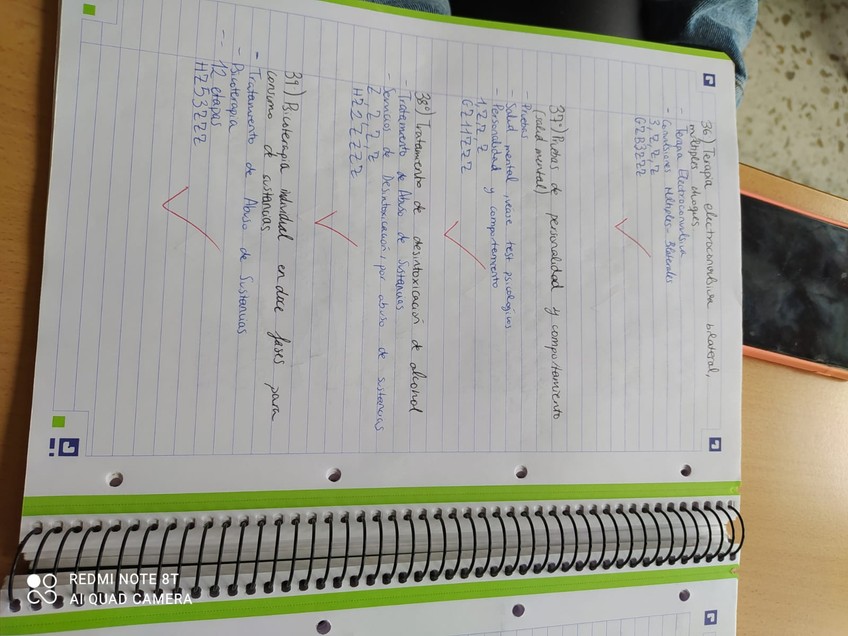 36) Terapia electroconvulsiva bilateral,
multiples choques
- Terapia Electroconvulsiva
- Convulsiones Múltiples- Bilaterales
3, Z, Z, Z
GZB3ZZZ
37º) Pruebas de personalidad y comportamiento
(salud mental)
- Pruebas
- Salud mental test psicologicos
- Personalidad y comportamiento
1, Z, Z, Z
GZ11ZZZ
38º) Tratamiento de desintoxicación de alcohol
- Tratamiento de Abuso de Sustancias
- Servicios de Desintoxicación, por abuso de sustancias
Z, Z, Z, Z
HZ2ZZZZ
39) Psicoterapia individual en doce fases para
consumo de sustancias
- Tratamiento de Abuso de Sustancias
- Psicoterapia
- 12 etapas
HZ53ZZZ
REDMI NOTE 8T
AI QUAD CAMERA